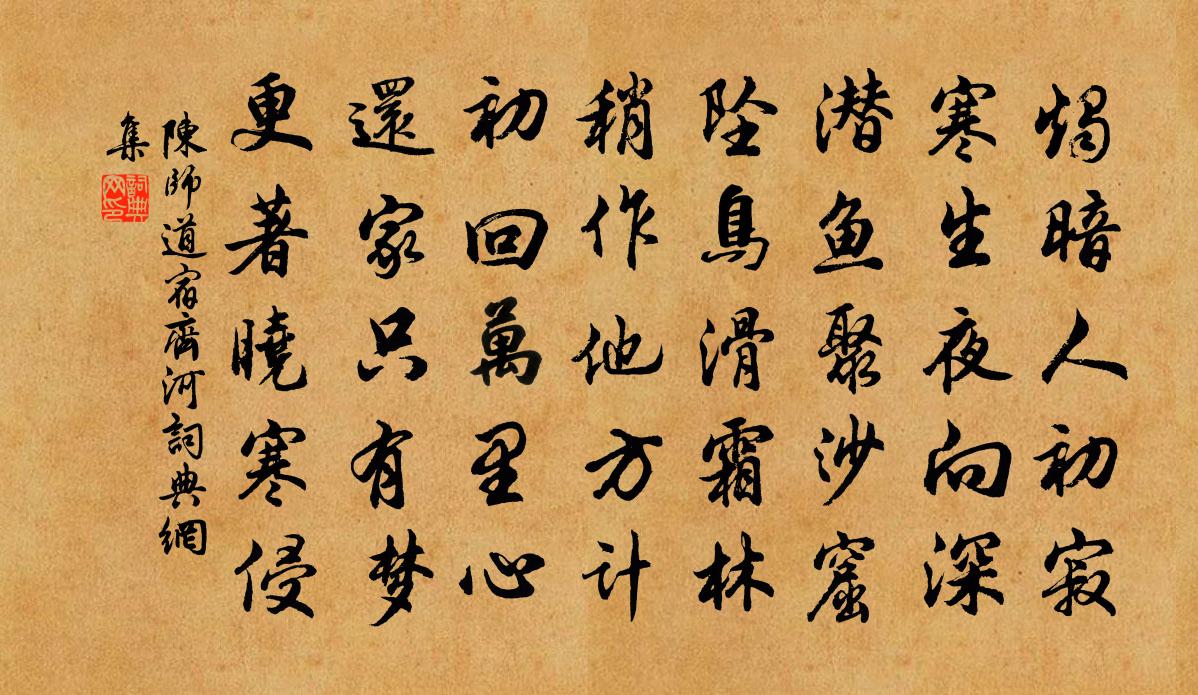 燭暗人初寂
寒生夜向深
潜鱼聚沙窟
坠鳥滑霜林
稍作他方計
初回萬里心
還家只有梦
更著曉寒侵
陳師道宿齊河詞典網
集
詞典
网印